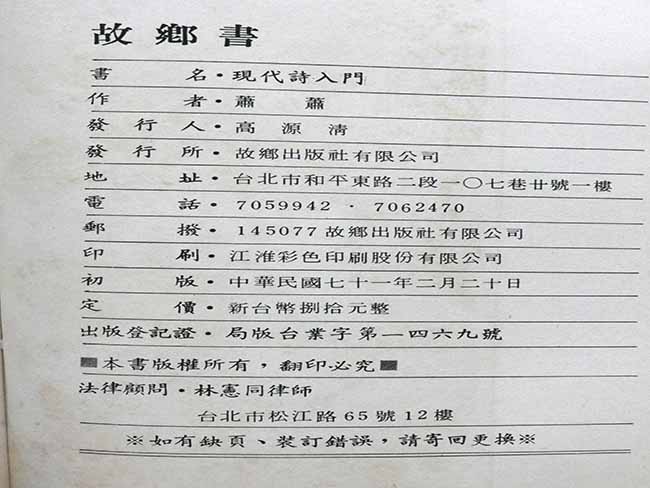 故鄉書
書名・現代詩入門
作者・蕭蕭
發行人・高源清
發行所・故鄉出版社有限公司
地址・台北市和平東路二段一〇七巷廿號一樓
電話・7059942・7062470
郵撥・145077故鄉出版社有限公司
印刷・江淮彩色印刷股份有限公司
初版・中華民國七十一年二月二十日
定價・新台幣捌拾元整
出版登記證・局版台業字第一四六九號
■本書版權所有，翻印必究■
法律顧問・林憲同律師
台北市松江路65號12樓
※如有缺頁、裝訂錯誤，請寄回更換※